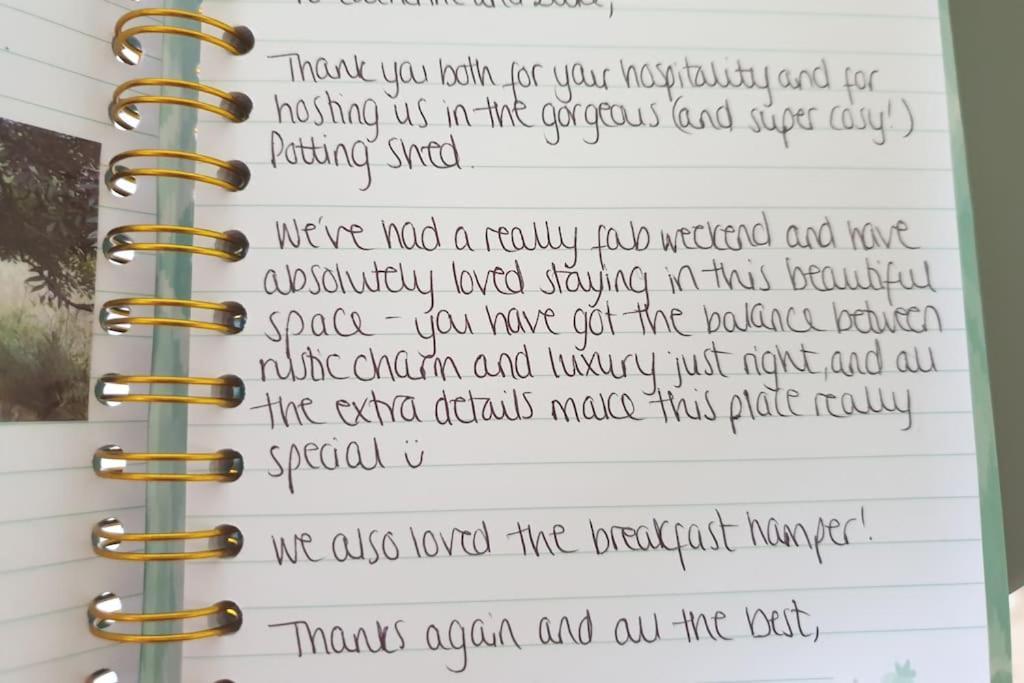 Thank you both for your hospitality and for
hosting us in the gorgeous (and super cosy!)
Potting Shed.
We've had a really fab weekend and have
absolutely loved staying in this beautiful
space - you have got the balance between
rustic charm and luxury just right, and all
the extra details make this place really
special ü
We also loved the breakfast hamper!
Thanks again and all the best,